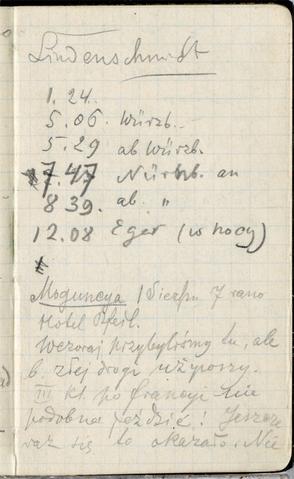 Lindenschmidt
1.24.
5.06. Würzb.
5.29 ab Würzb.
7.47 Nürnb. an
8 39. ab. "
12.08 Eger (w nocy)
Moguncya 1 Sierpn 7 rano
Hotel Pfeil.
Wczoraj przybyliśmy tu, ale
b. złej drogi używszy.
III kl. po francyi nie
podobna jeździć! Jeszcze
raz się to okazało. Nie